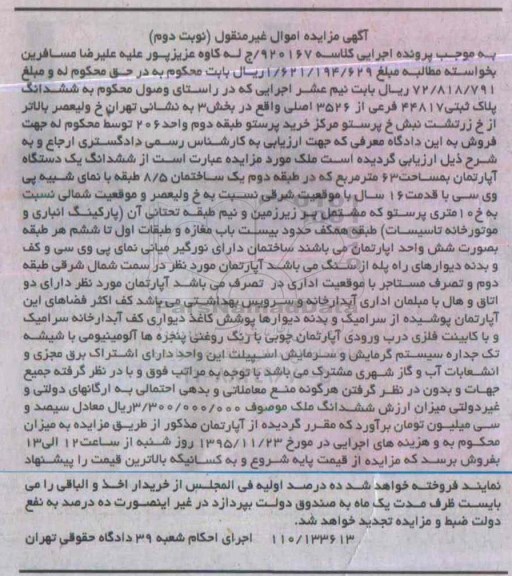 آگهی مزایده اموال غیرمنقول (نوبت دوم)
به موجب پرونده اجرایی کلاسه ۹۲۰۱۶۷/ج له کاوه عزیزپور علیه علیرضا مسافرین
بخواسته مطالبه مبلغ ۱/۶۲۱/۱۹۴/۶۲۹ریال بابت محکوم به در حق محکوم له و مبلغ
۷۲/۸۱۸/۷۹۱ ریال بابت نیم عشر اجرایی که در راستای وصول محکوم به ششدانگ
پلاک ثبتی۴۴۸۱۷ فرعی از ۳۵۲۶ اصلی واقع در بخش۳ به نشانی تهران خ ولیعصر بالاتر
از خ زرتشت نبش خ پرستو مرکز خرید پرستو طبقه دوم واحد۲۰۶ توسط محکوم له جهت
فروش به این دادگاه معرفی که جهت ارزیابی به کارشناس رسمی دادگستری ارجاع و به
شرح ذیل ارزیابی گردیده است ملک مورد مزایده عبارت است از ششدانگ یک دستگاه
آپارتمان بمساحت۶۳ مترمربع که در طبقه دوم یک ساختمان ۸/۵ طبقه با نمای شیبه پی
وی سی با قدمت۱۶ سال با موقعیت شرقی نسبت به خ ولیعصر و موقعیت شمالی نسبت
به خ۱۰متری پرستو که مشتمل بر زیرزمین و نیم طبقه تحتانی آن (پارکینگ انباری و
موتورخانه تاسیسات) طبقه همکف حدود بیست باب مغازه و طبقات اول تا ششم هر طبقه
بصورت شش واحد اپارتمان می باشند ساختمان دارای نورگیر میانی نمای پی وی سی و کف
و بدنه دیوارهای راه پله از سنگ می باشد آپارتمان مورد نظر در سمت شمال شرقی طبقه
دوم و تصرف مستاجر با موقعیت اداری در تصرف می باشد آپارتمان مورد نظر دارای دو
اتاق و هال با مبلمان اداری آبدارخانه و سرویس بهداشتی می باشد کف اکثر فضاهای این
آپارتمان پوشیده از سرامیک و بدنه دیوارها پوشش کاغذ دیواری کف آبدارخانه سرامیک
و با کابینت فلزی درب ورودی آپارتمان چوبی با رنگ روغنی پنجره ها آلومینیومی با شیشه
تک جداره سیستم گرمایش و سرمایش اسپیلت این واحد دارای اشتراک برق مجزی و
انشعابات آب و گاز شهری مشترک می باشد با توجه به مراتب فوق و با در نظر گرفته جمیع
جهات و بدون در نظر گرفتن هرگونه منع معاملاتی و بدهی احتمالی به ارگانهای دولتی و
غیردولتی میزان ارزش ششدانگ ملک موصوف ۳/۳۰۰/۰۰۰/۰۰۰ریال معادل سیصد و
سی میلیون تومان برآورد که مقرر گردیده از آپارتمان مذکور از طریق مزایده به میزان
محکوم به و هزینه های اجرایی در مورخ ۱۳۹۵/۱۱/۲۳ روز شنبه از ساعت۱۲ الی۱۳
بفروش برسد که مزایده از قیمت پایه شروع و به کسانیکه بالاترین قیمت را پیشنهاد
نمایند فروخته خواهد شد ده درصد اولیه فی المجلس از خریدار اخذ و الباقی را می
بایست ظرف مدت یک ماه به صندوق دولت بپردازد در غیر اینصورت ده درصد به نفع
دولت ضبط و مزایده تجدید خواهد شد.
۱۱۰/۱۳۳۶۱۳ اجرای احکام شعبه ۳۹ دادگاه حقوقی تهران